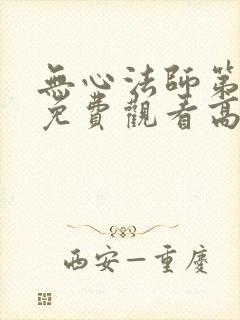 無心法師第
免費觀看高
西安—重慶